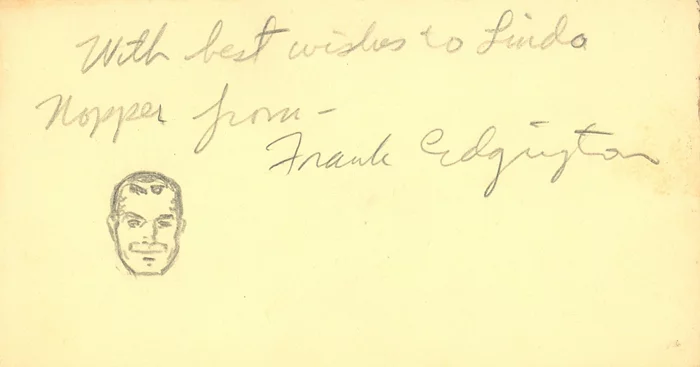 With best wishes to Linda
Nopper from –
Frank Edgington